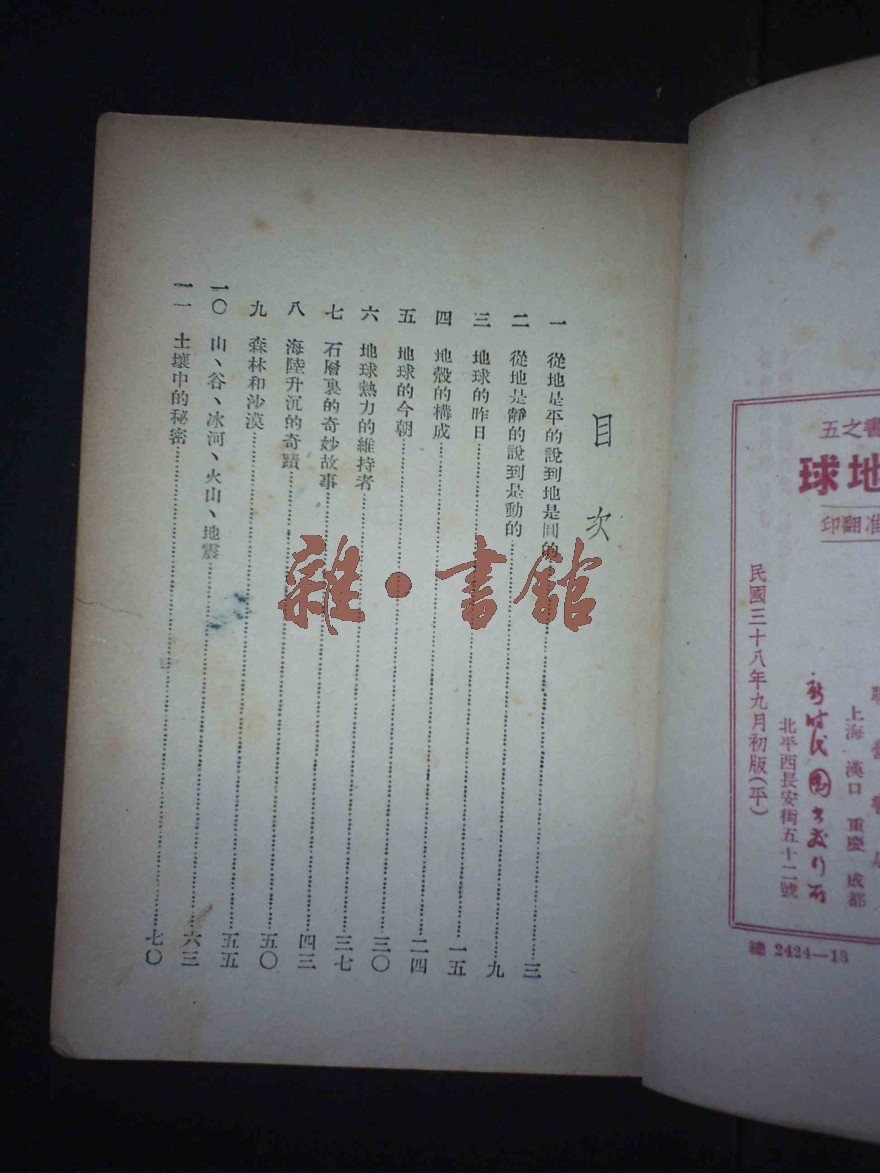 五之書
球地
印翻准
民國三十八年九月初版(平)
上海 漢口 重慶 成都
北平西長安街五十二號
總 2424—13
目次
一 從地是平的說到地是圓的 三
二 從地是靜的說到是動的 九
三 地球的昨日 一五
四 地殼的構成 二四
五 地球的今朝 三〇
六 地球熱力的維持者 三七
七 石層裏的奇妙故事 四三
八 海陸升沉的奇蹟 五〇
九 森林和沙漠 五五
一〇 山、谷、冰河、火山、地震 六三
一一 土壤中的秘密 七〇
雜·書館